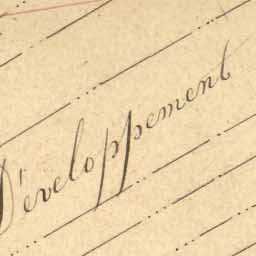 Développement